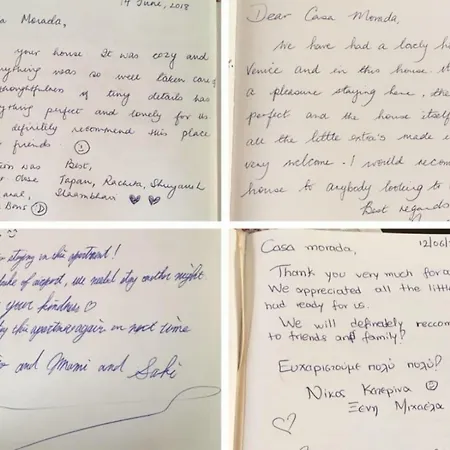 14 June, 2018
a Morada,
your house. It was cozy and
nything was so well taken care of
thoughtfulness of tiny details was
ything perfect and lovely for us
definitely recommend this place
friends. :)
tion was Best,
close Tapan, Rachita, Shreyansh
Bons
Dear Casa Morada,
We have had a lovely h
Venice and in this house. it
a pleasure staying here, the
perfect and the house itself
all the little extra's made u
very welcome. I would recom
house to anybody looking to
Best regards
r staying in this apartment!
we stay another night.
your kindness ♡
apartment again on next time
and Mami and Saki
Casa morada, 12/06/
Thank you very much for a
We appreciated all the little
had ready for us.
We will definately reccom
to friends and family!
Ευχαριστούμε πολύ πολύ!
Νίκος Κατερίνα :)
Ξένη Μιχαέλα